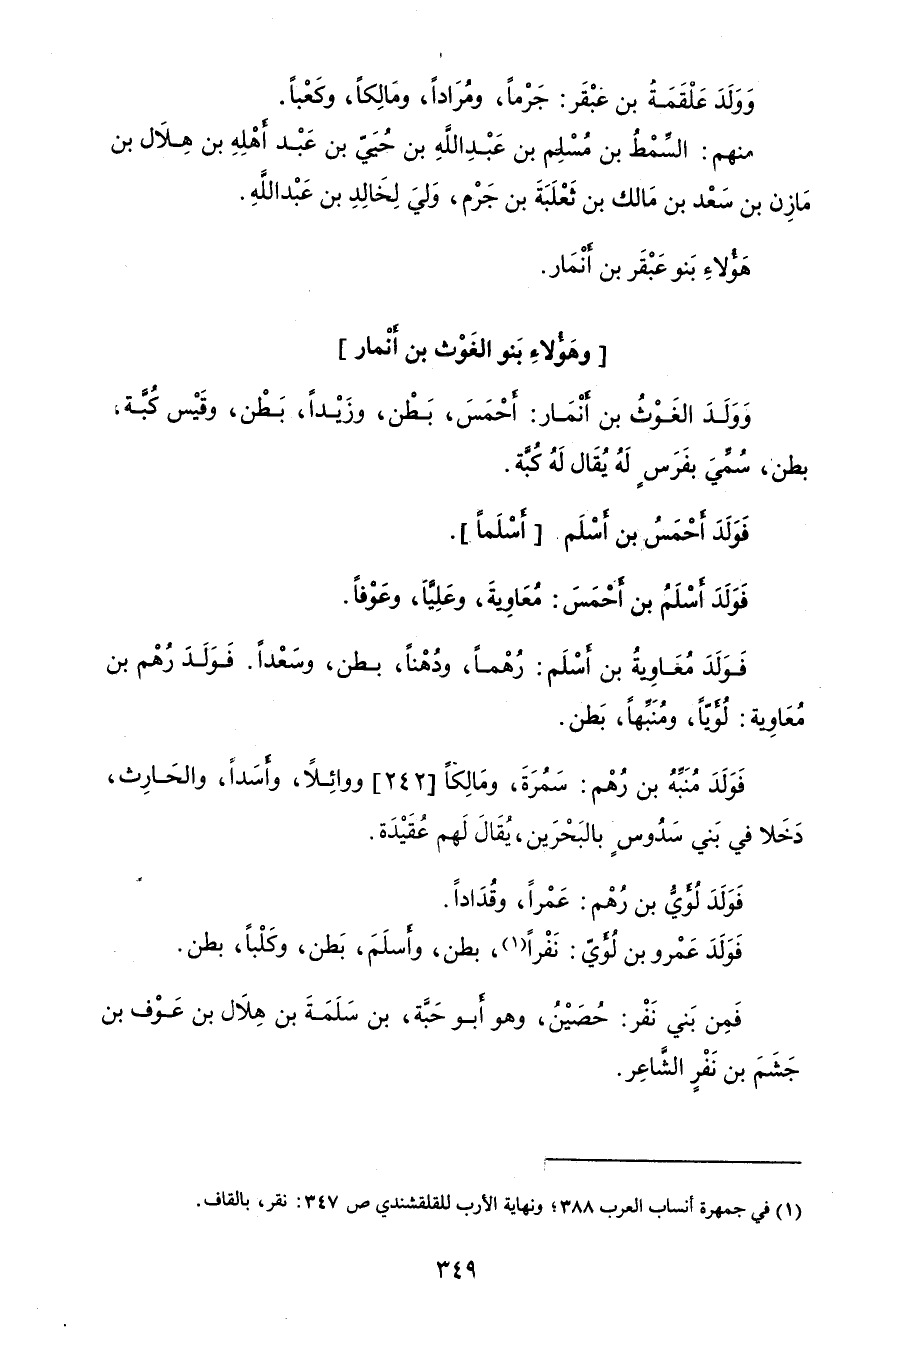 وَوَلَدَ عَلْقَمَةُ بن عَبْقَر: جَرْماً، ومُرَاداً، ومَالِكاً، وكَعْباً.
منهم: السِّمْطُ بن مُسْلِم بن عَبْدِاللَّهِ بن حُيَيّ بن عَبْد أَهْلِهِ بن هِلَال بن
مَازِن بن سَعْد بن مَالك بن ثَعْلَبَة بن جَرْم، وَليَ لِخَالِدِ بن عَبْداللَّهِ.
هَؤُلاءِ بَنو عَبْقَر بن أَنْمَار.
[ وهَؤُلاءِ بَنو الغَوْث بن أَنْمار ]
وَوَلَدَ الغَوْثُ بن أَنْمَار: أَحْمَسَ، بَطْن، وزَيْداً، بَطْن، وقَيْس كُبَّة،
بطن، سُمِّيَ بفَرَسٍ لَهُ يُقَال لَهُ كُبَّة.
فَوَلَدَ أَحْمَسُ بن أَسْلَم [ أَسْلَماً ].
فَوَلَدَ أَسْلَمُ بن أَحْمَسَ: مُعَاوِيةَ، وعَلِيَّاً، وعَوْفاً.
فَوَلَدَ مُعَاوِيةُ بن أَسْلَم: رُهْماً، ودُهْناً، بطن، وسَعْداً. فَوَلَدَ رُهْم بن
مُعَاوِية: لُؤَيّاً، ومُنَبِّهاً، بَطن.
فَوَلَدَ مُنَبِّهُ بن رُهْم: سَمُرَةَ، ومَالِكاً [٢٤٢] ووائِلًا، وأَسَداً، والحَارِث،
دَخَلا في بَني سَدُوسٍ بالبَحْرَين، يُقَالَ لَهم عُقَيْدَة.
فَوَلَدَ لُؤَيُّ بن رُهْم: عَمْراً، وقُدَاداً.
فَوَلَدَ عَمْرو بن لُؤَيّ: نَفْراً(١)، بطن، وأَسلَمَ، بَطن، وكَلْباً، بطن.
فَمِن بَني نَفْر: حُصَيْنُ، وهو أَبو حَبَّة، بن سَلَمَةَ بن هِلَال بن عَوْف بن
جَشَمَ بن نَفْرٍ الشَّاعِر.
(١) في جمهرة أنساب العرب ٣٨٨؛ ونهاية الأرب للقلقشندي ص ٣٤٧: نقر، بالقاف.
٣٤٩